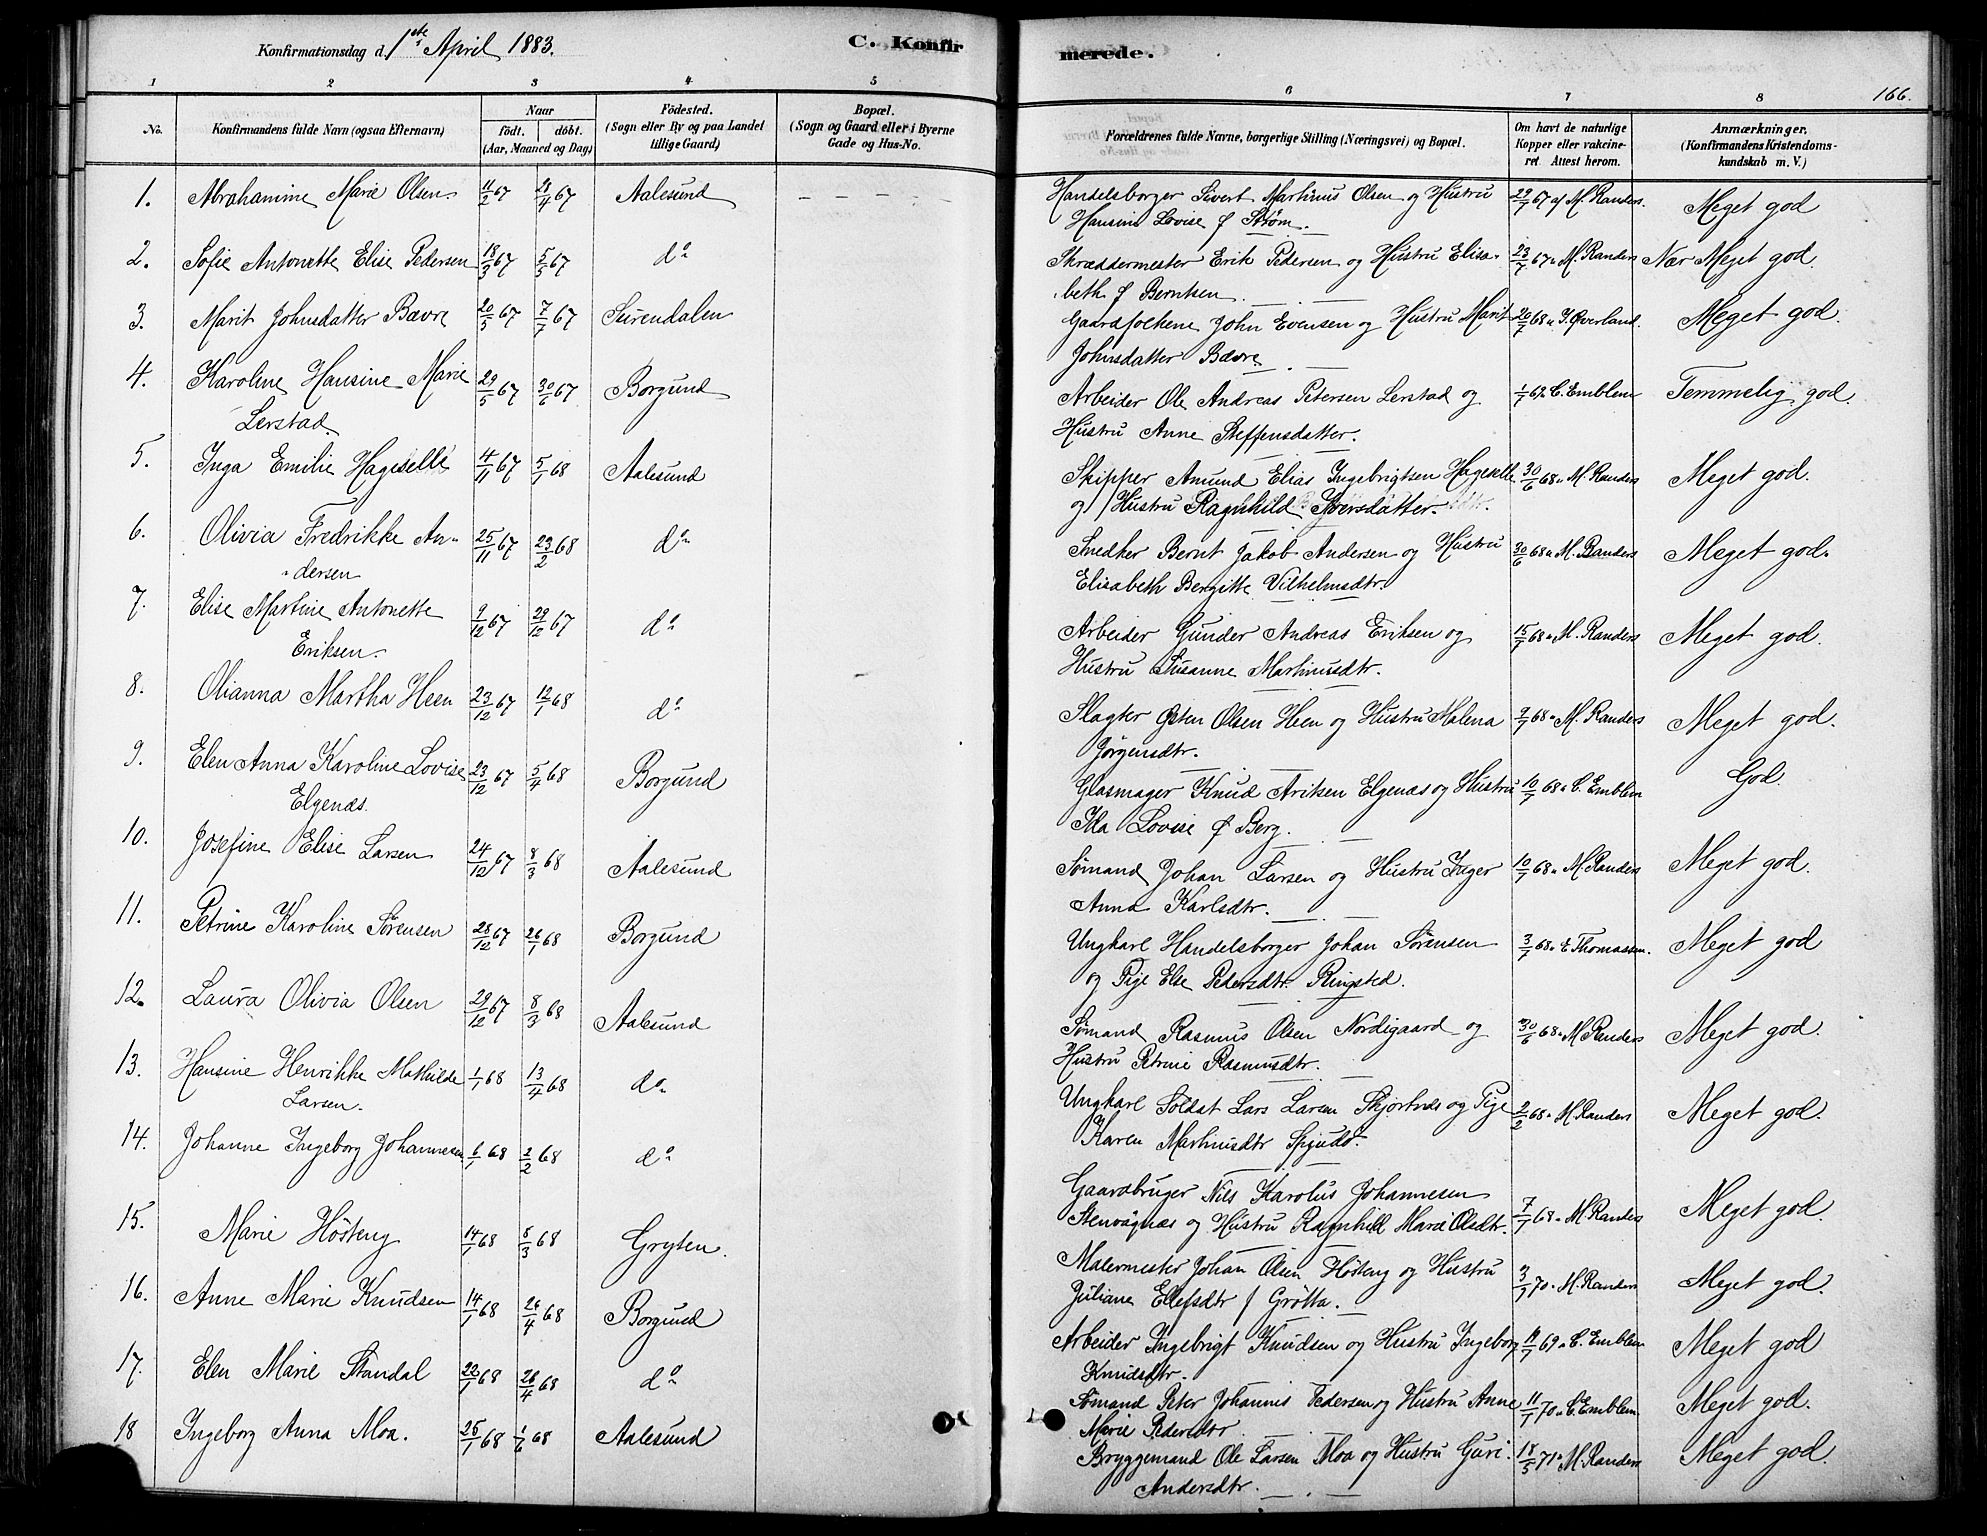 Konfirmationsdag d. 1ste April 1883.
C. Konfir
merede.
166.
1 2 3 4 5 6 7 8
No.
Konfirmandens fulde Navn (ogsaa Efternavn)
Naar
födt. döbt.
(Aar, Maaned og Dag)
Födested.
(Sogn eller By og paa Landet
tillige Gaard)
Bopæl.
(Sogn og Gaard eller i Byerne
Gade og Hus-No.
Forældrenes fulde Navne, borgerlige Stilling (Næringsvei) og Bopæl.
Om havt de naturlige
Kopper eller vakcine-
ret. Attest herom.
Anmærkninger.
(Konfirmandens Kristendoms-
kundskab m. V.)
1. Abrahamine Marie Olsen. 11/2 67 28/4 67 Aalesund — — — — Handelsborger Sivert Martinus Olsen og Hustru 29/7 67 af M. Randers. Meget god
Hansine Lovise f Strøm.
2. Sofie Antonette Elise Pedersen 18/3 67 5/5 67 do Skræddermester Erik Pedersen og Hustru Elisa- 23/7 67 " M. Randers Nær Meget god.
beth f Berntsen
3. Marit Johnsdatter Bævre 20/5 67 7/7 67 Surendalen Gaardfolkene John Evensen og Hustru Marit 20/7 68 " J. Øverland. Meget god.
Johnsdatter Bævre
4. Karoline Hansine Marie 29/5 67 30/6 67 Borgund Arbeider Ole Andreas Petersen Lerstad og C. Emblem Temmelig god.
Lerstad. Hustru Anne Steffensdatter.
5. Inga Emilie Hageselle 4/11 67 5/1 68 Aalesund Skipper Amund Elias Ingebrigtsen Hageselle 30/6 68 " M. Randers Meget god.
og Hustru Ragnhild Iversdatter.
6. Olivia Fredrikke An- 25/11 67 23/2 68 do Snedker Bernt Jakob Andersen og Hustru 30/6 68 " M. Randers Meget god.
dersen Elisabeth Bergitte Vilhelmsdtr.
7. Elise Martine Antonette 9/12 67 29/12 67 do Arbeider Gunder Andreas Eriksen og 15/7 68 " M. Randers Meget god.
Eriksen. Hustru Susanne Martinusdtr.
8. Olianna Martha Heen 23/12 67 12/1 68 do Slagter Østen Olsen Heen og Hustru Malena 9/7 68 " M. Randers Meget god.
Jørgensdtr.
9. Elen Anna Karoline Lovise 23/12 67 5/4 68 Borgund Glasmager Knud Ariksen Elgenæs og Hustru 10/7 68 " C. Emblem God.
Elgenæs. Ida Lovise f Berg.
10. Josefine Elise Larsen 24/12 67 8/3 68 Aalesund Sømand Johan Larsen og Hustru Inger 10/7 68 " M. Randers Meget god.
Anna Karlsdtr.
11. Petrine Karoline Sørensen 28/12 67 26/1 68 Borgund Ungkarl Handelsborger Johan Sørensen 3/7 68 " E Thomassen. Meget god
og Pige Else Pedersdtr. Ringsted.
12. Laura Olivia Olsen 29/12 67 8/3 68 Aalesund Sømand Rasmus Olsen Nordigaard og 30/6 68 " M Randers Meget god.
Hustru Petrine Rasmusdtr.
13. Hansine Henrikke Mathilde 1/1 68 13/4 68 do Ungkarl Soldat Lars Larsen og Pige 2/2 68 " M. Randers Meget god.
Larsen. Karen Martinusdtr
14. Johanne Ingeborg Johannesen 6/1 68 2/2 68 do Gaardbruger Nils Karolus Johannesen 7/7 68 " M Randers Meget god.
Stenvågnæs og Hustru Ragnhild Marie Olsdtr.
15. Marie Hösteng 14/1 68 8/3 68 Gryten. Malermester Johan Olsen Hösteng og Hustru 3/3 70 " M. Randers Meget god.
Juliane Ellefsdtr f Grötta.
16. Anne Marie Knudsen 14/1 68 26/4 68 Borgund Arbeider Ingebrigt Knudsen og Hustru Ingeborg 69 " C. Emblem Meget god
Knudsdtr.
17. Elen Marie Standal 22/1 68 26/4 68 do Sømand Peter Johannis Pedersen og Hustru Anne 70 " C. Emblem. Meget god.
Marie Pedersdtr
18 Ingeborg Anna Moa. 25/1 68 1/6 68 Aalesund Bryggemand Ole Larsen Moa og Hustru Guri 18/5 71 " M. Randers Meget god.
Andersdtr.